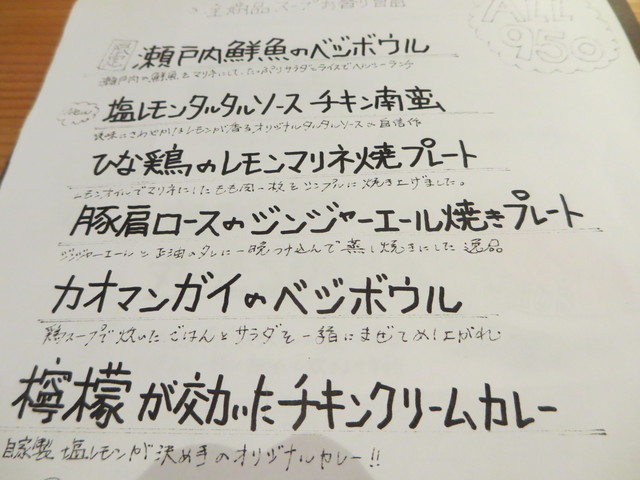 全商品スープお替り自由
ALL
950
限定
瀬戸内鮮魚のベジボウル
瀬戸内の鮮魚をマリネにしたたっぷりサラダとライスでヘルシーランチ
New
塩レモンタルタルソース チキン南蛮
さわやかなレモンが香るオリジナルタルタルソース 自信作
ひな鶏のレモンマリネ焼プレート
レモンオイルでマリネにしたもも肉一枚をシンプルに焼き上げました。
豚肩ロースのジンジャーエール焼きプレート
ジンジャーエールと正油のタレに一晩つけ込んで蒸し焼きにした逸品
カオマンガイのベジボウル
鶏スープで炊いたごはんとサラダを一緒にまぜてめし上がれ
檸檬が効いたチキンクリームカレー
自家製塩レモンが決め手のオリジナルカレー!!